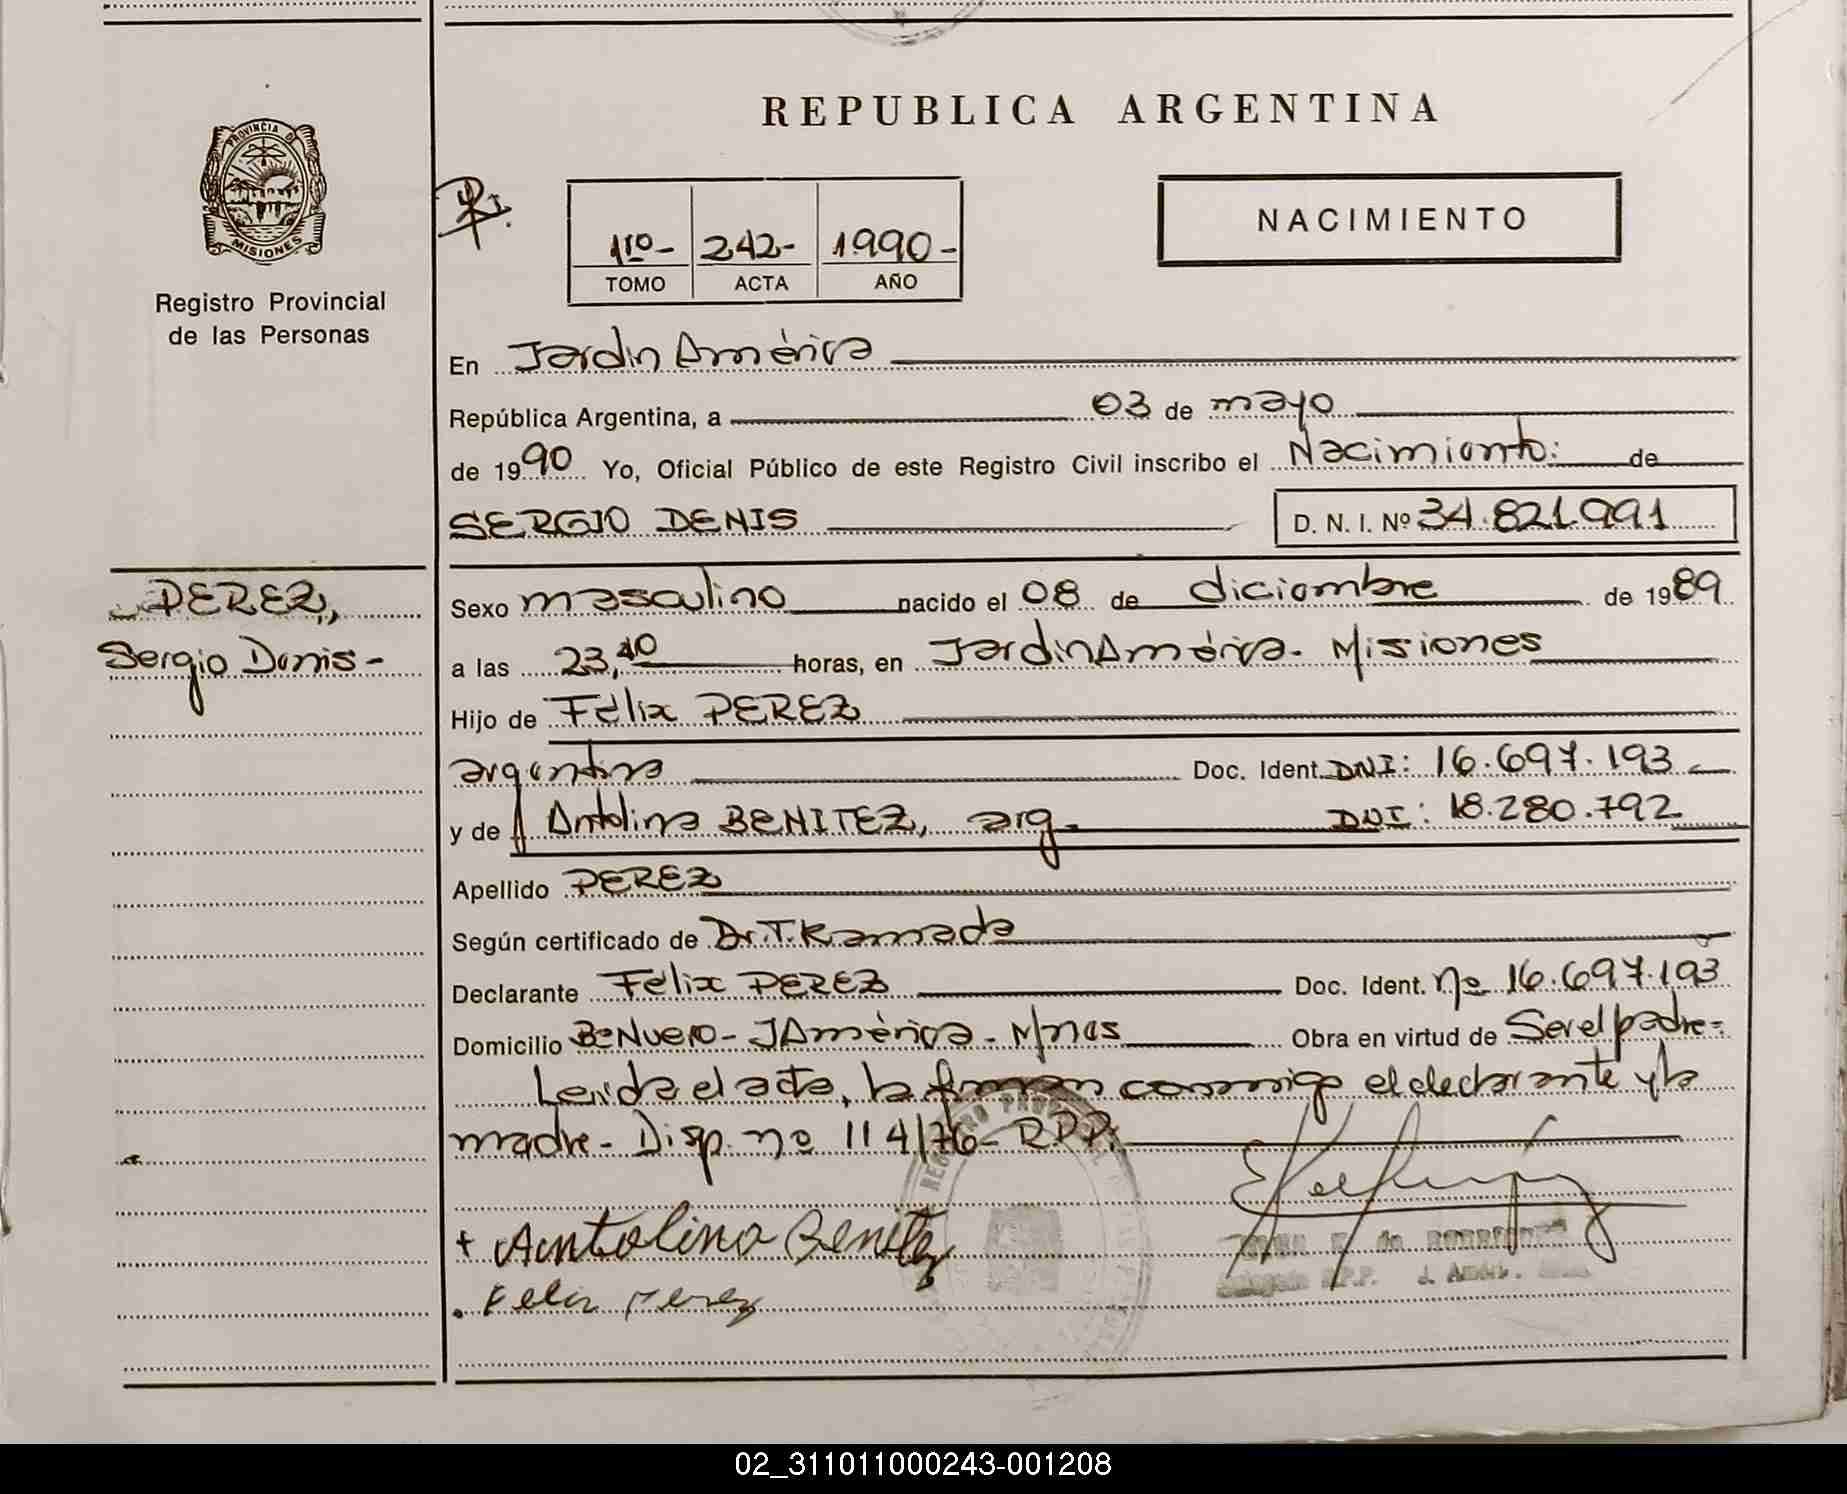 REPUBLICA ARGENTINA
PROVINCIA DE
MISIONES
Registro Provincial
de las Personas
1ro- 242- 1990-
TOMO ACTA AÑO
NACIMIENTO
En Jardin América
República Argentina, a 03 de mayo
de 1990 Yo, Oficial Público de este Registro Civil inscribo el Nacimiento: de
SERGIO DENIS D. N. I. Nº 34.821.991
PEREZ,
Sergio Denis-
Sexo masculino nacido el 08 de diciembre de 1989
a las 23,40 horas, en Jardin América- Misiones
Hijo de Félix PEREZ
argentina Doc. Ident. DNI: 16.697.193
y de Antolina BENITEZ, arg. DNI: 18.280.792
Apellido PEREZ
Según certificado de Dr. T. Kamada
Declarante Félix PEREZ Doc. Ident. nº 16.697.193
Domicilio Bº Nuevo- JAmérica- M/nes Obra en virtud de Ser el padre-
Leida el acta, la firman conmigo el declarante y la
madre- Disp. nº 114/76- R.P.P.
+ Antolina Benitez
Felix Perez
02_311011000243-001208